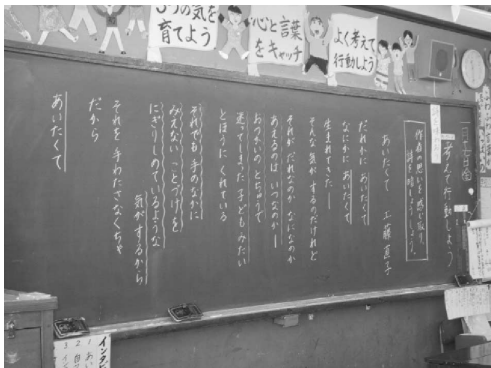 の気を
育てよう
心と言葉
をキャッチ
よく考えて
行動しよう
考えて行動しよう
作者の思いを
あいたくて 工藤直子
だれかに あいたくて
なにかに あいたくて
生まれてきた——
そんな気がするのだけれど
それが だれなのか なになのか
あえるのは いつなのか——
おつかいの とちゅうで
迷ってしまった 子どもみたい
とほうに くれている
それでも 手のなかに
みえない ことづけを
にぎりしめているような
気がするから
それを 手わたさなくちゃ
だから
あいたくて
インタ
1 あい
2 自
3 イン